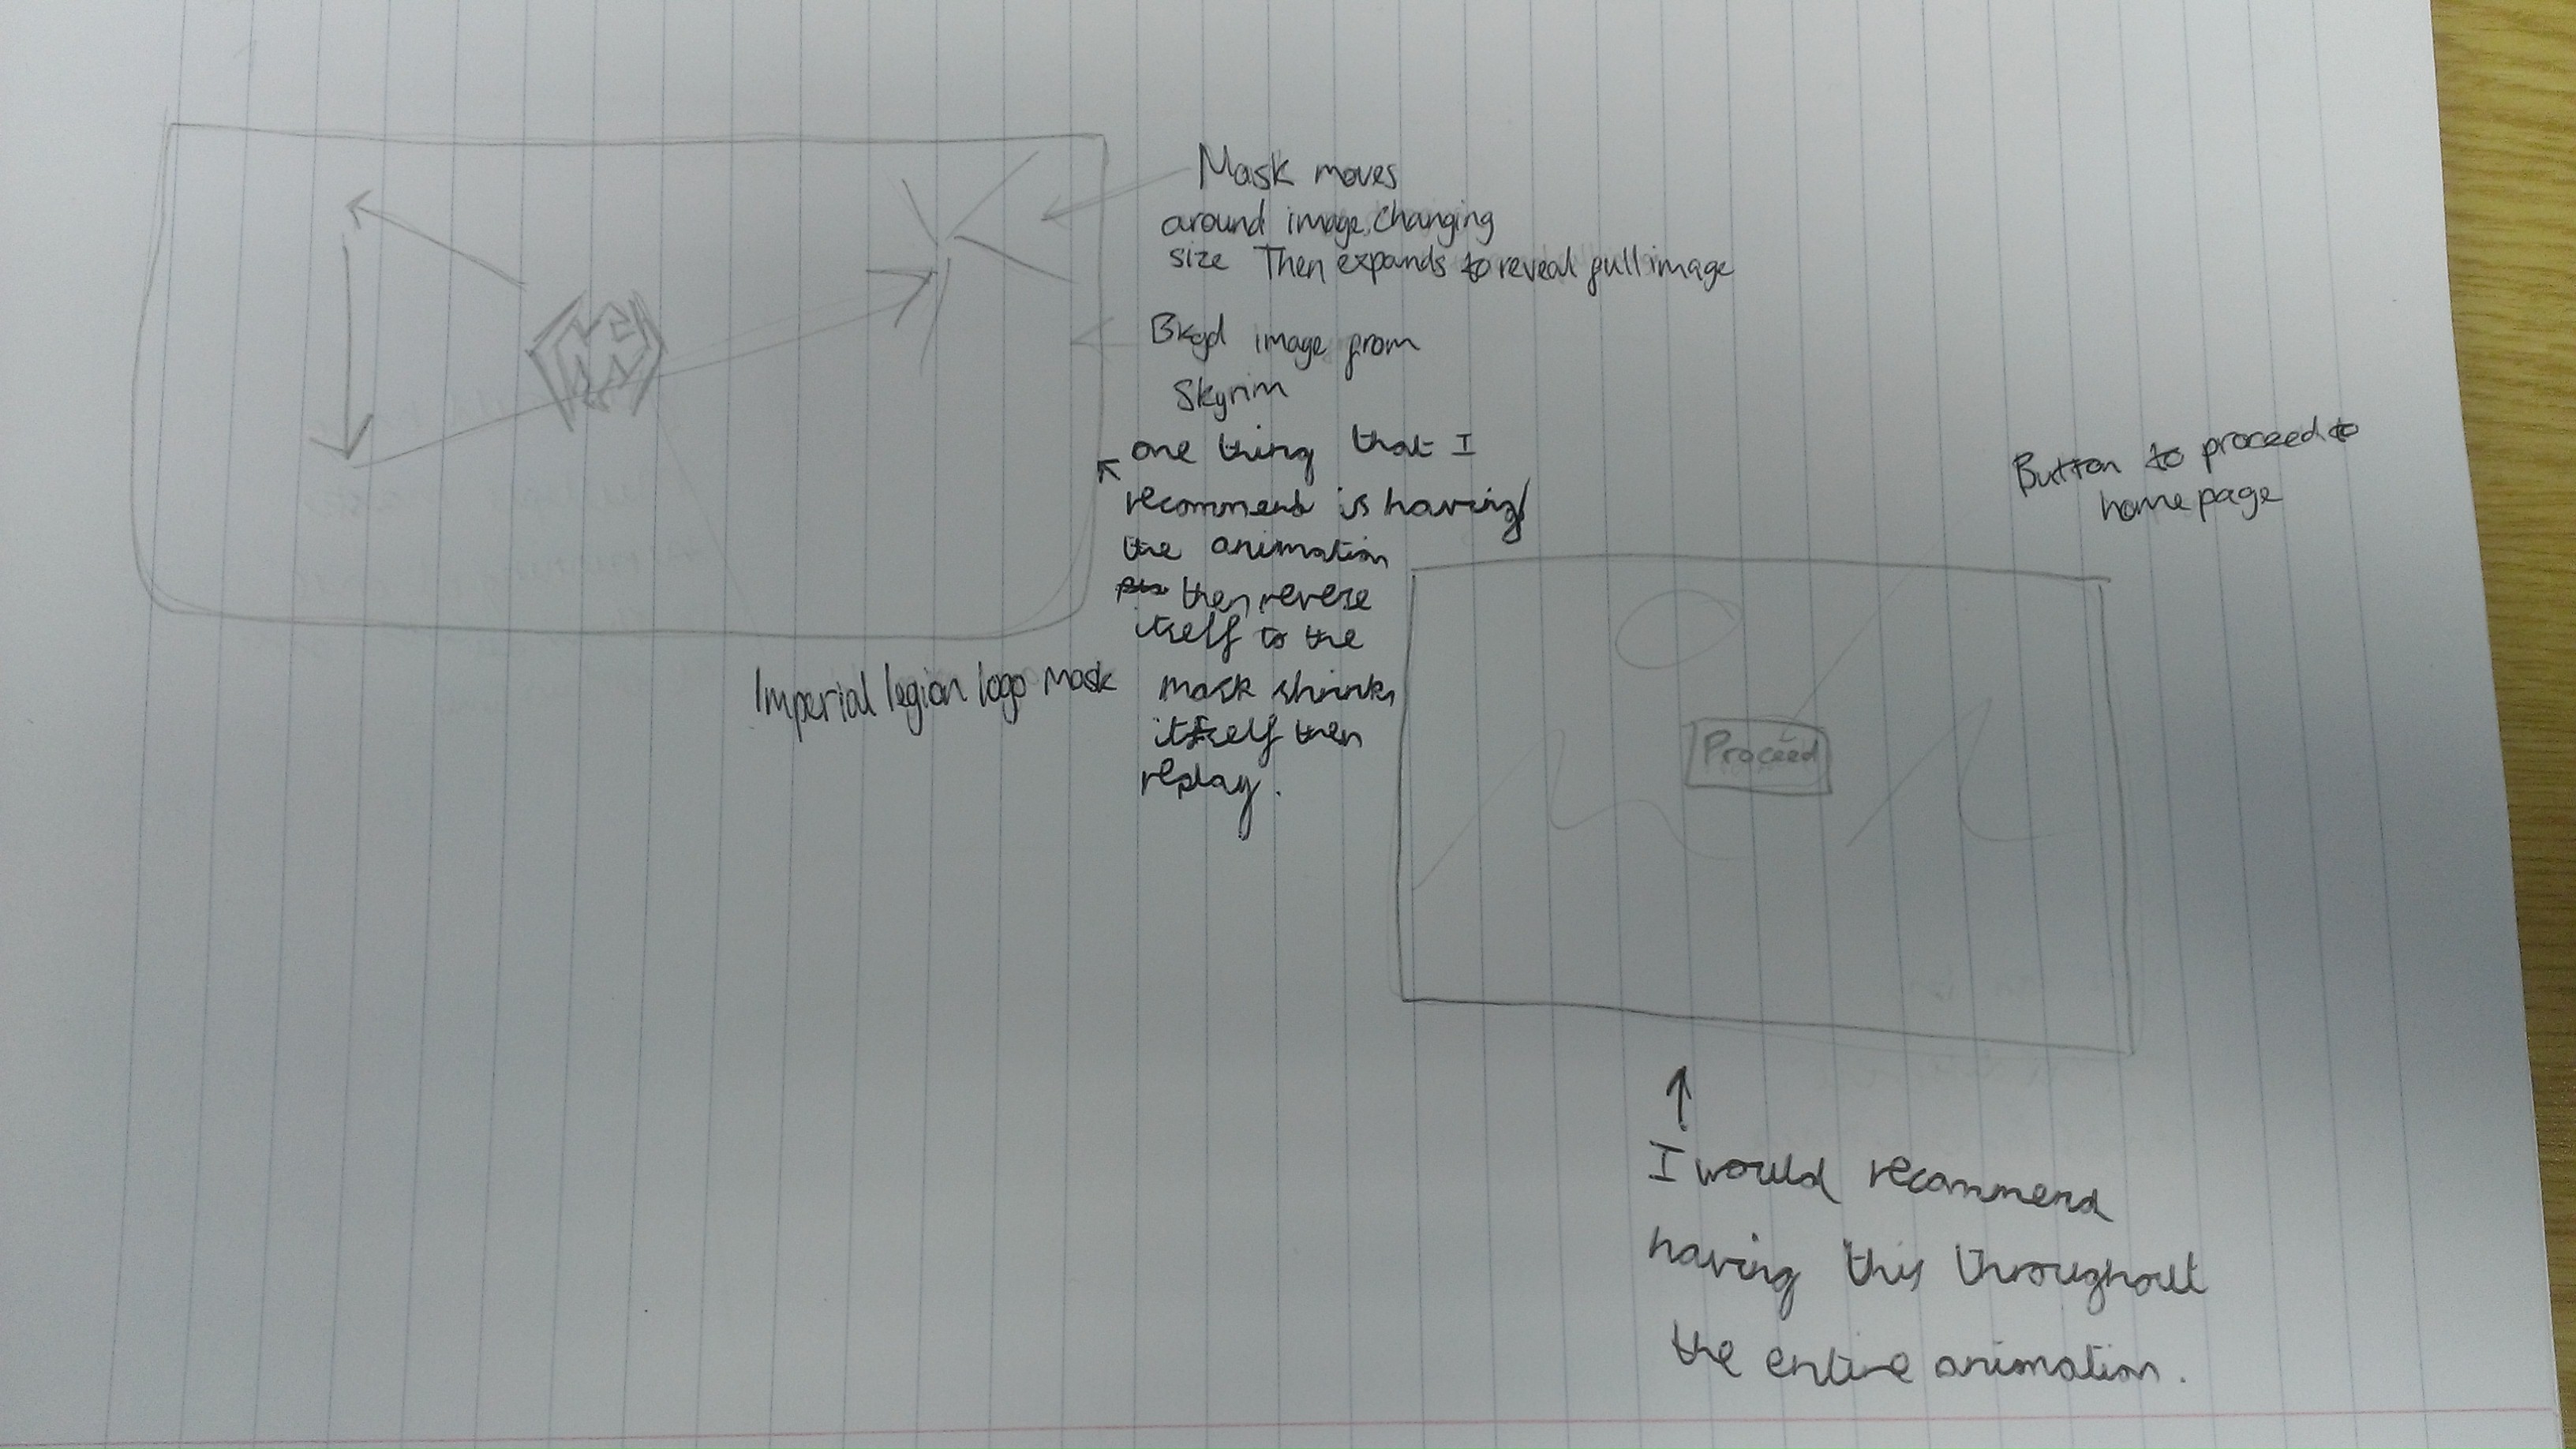 Mask moves
around image, changing
size Then expands to reveal full image
Bkgd image from
Skyrim
one thing that I
recommend is having
the animation
then reverse
itself to the
mask shrinks
itself then
replay.
Imperial legion logo Mask
Button to proceed to
home page
Proceed
I would recommend
having this throughout
the entire animation.